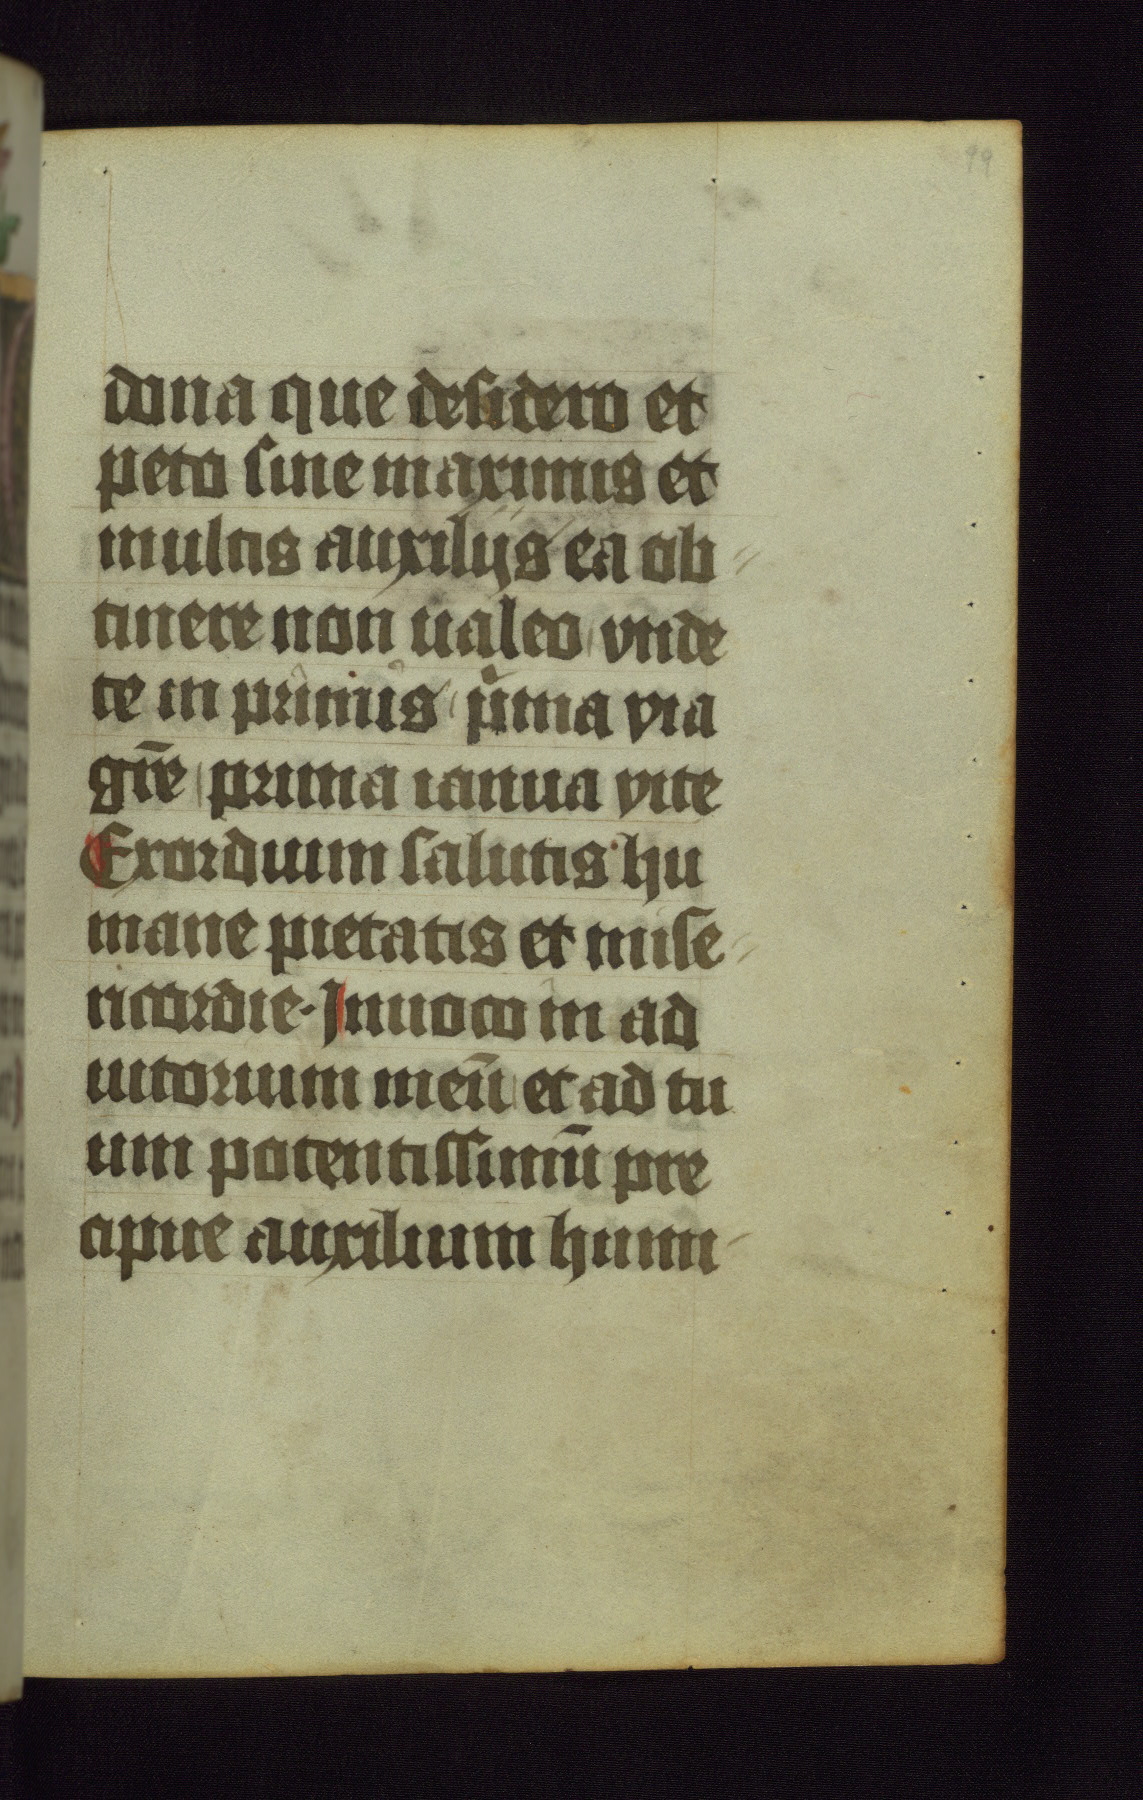 99
dona que desidero et
peto sine maximis et
multis auxilijs ea ob
tinere non ualeo vnde
te in primis pͥma via
grē prima ianua vite
Exordium salutis hu
mane pietatis et mise
ricordie. Inuoco in ad
iutorium meū et ad tu
um potentissimū pre
cipue auxilium humi